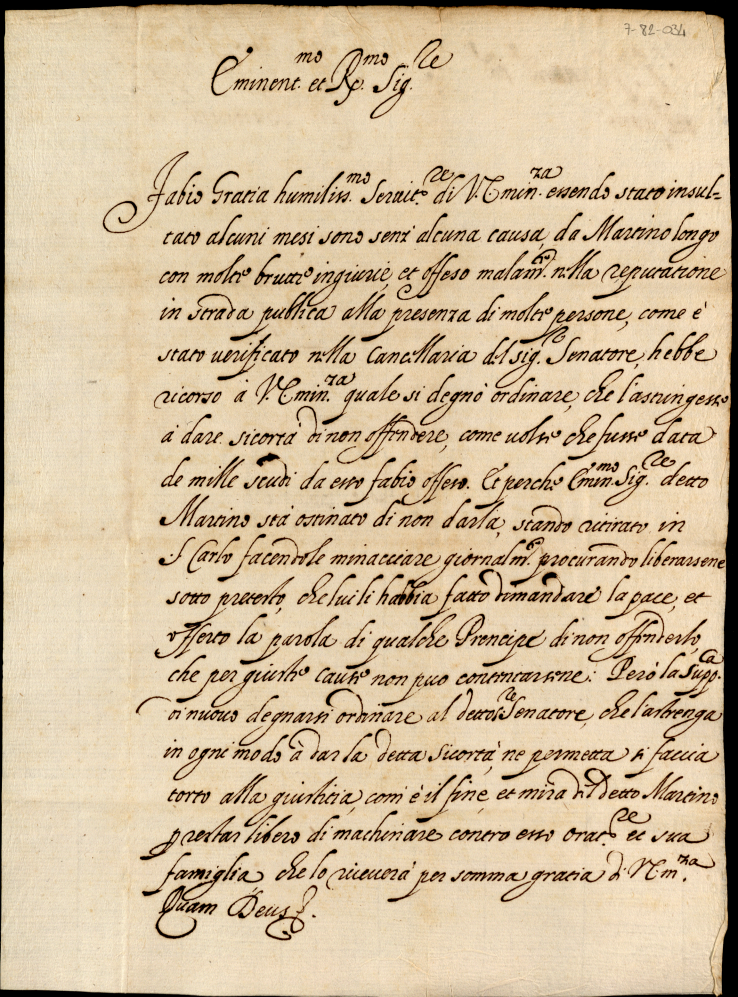 7-82-034
Eminent.mo et R.mo Sig.re
Fabio Gratia humiliss.mo Seruit.re di V. Emin.za essendo stato insul=
tato alcuni mesi sono senz' alcuna causa, da Martino longo
con molte brutte ingiurie, et offeso malam.te nella reputatione
in strada publica alla presenza di molte persone, come è
stato verificato nella Cancellaria del sig.re Senatore, hebbe
ricorso à V. Emin.za quale si degnò ordinare, che l'astringesse
à dare sicortà di non offendere, come uolse che fusse data
de mille scudi da esso fabio offeso. Et perche Emin.mo Sig.re detto
Martino stà ostinato di non darla, stando ritirato in
S. Carlo facendole minacciare giornalm.te procurando liberarsene
sotto pretesto, che lui li habbia fatto dimandare la pace, et
offerto la parola di qualche Prencipe di non offenderlo,
che per giuste cause non puo contentarsene: Però la supp.ca
di nuouo degnarsi ordinare al detto S.re Senatore, che l'astrenga
in ogni modo à dar la detta sicortà, ne permetta si faccia
torto alla giustitia, com' è il fine, et mira del detto Martino
p restar libero di machinare contro esso orat.re et sua
famiglia che lo riceuerà per somma gratia di V. Em.za
Quam Deus